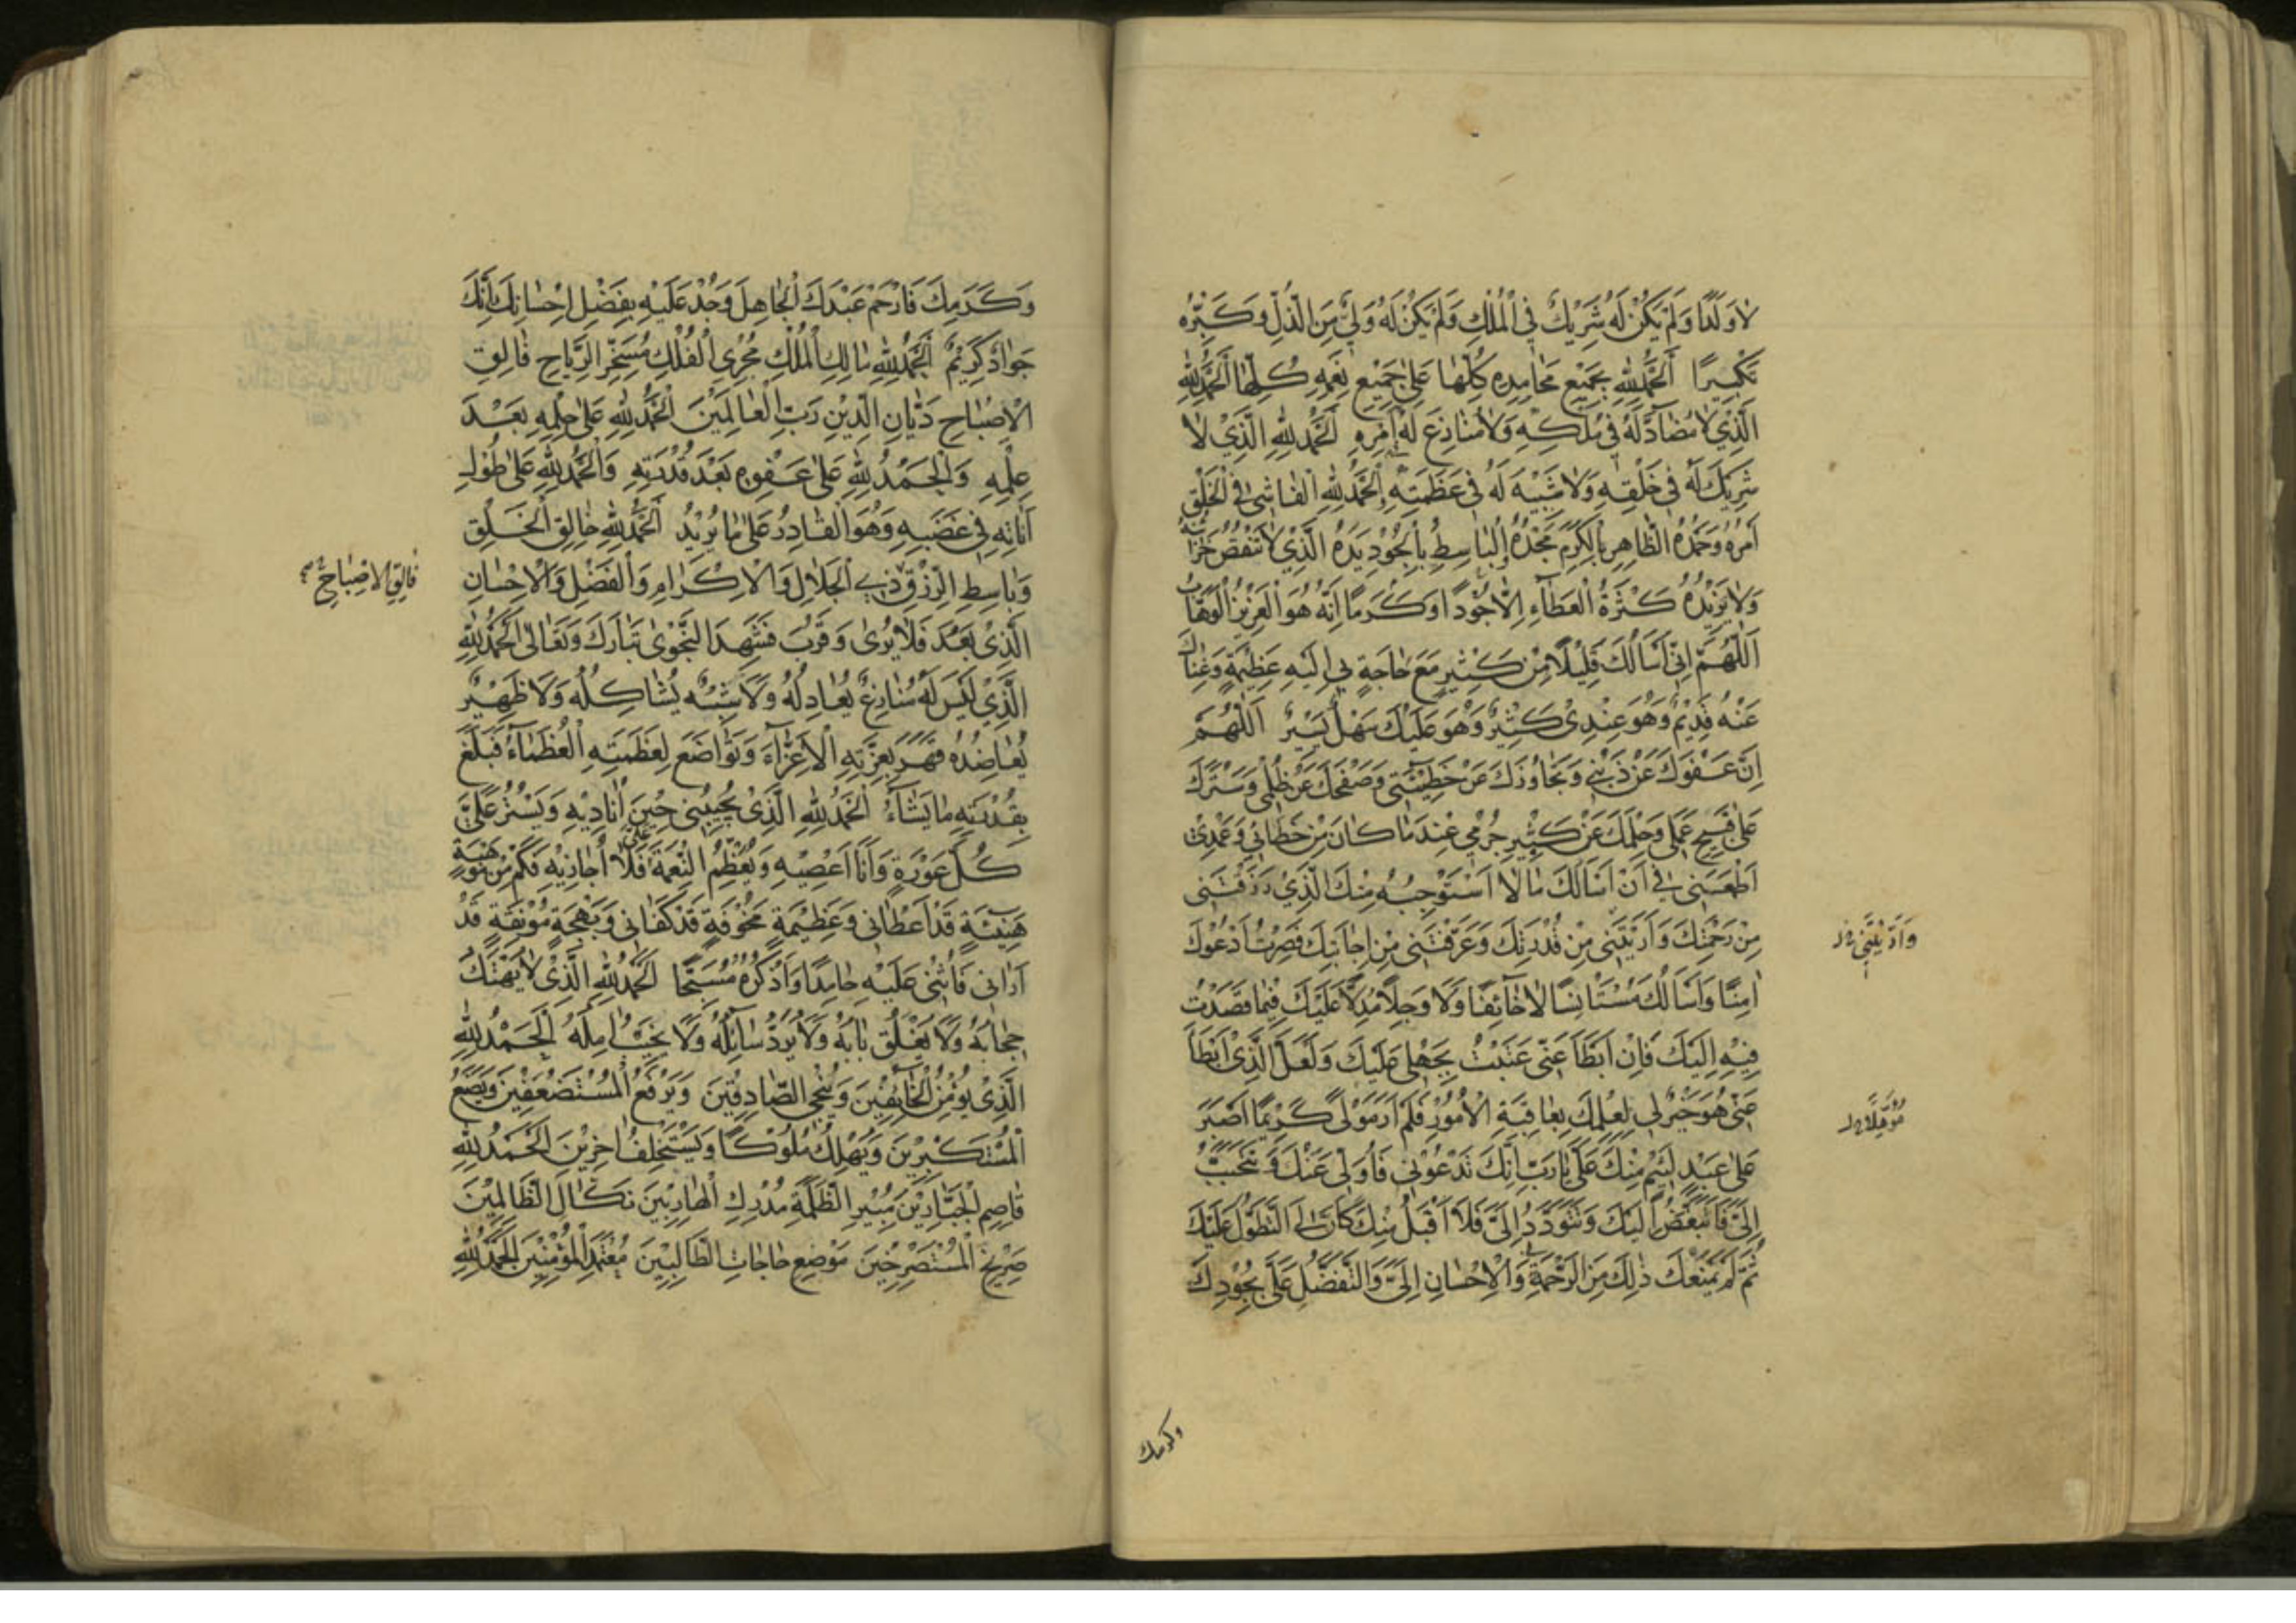 لَا وَلَدًا وَلَمْ يَكُنْ لَهُ شَرِيْكٌ فِي الْمُلْكِ وَلَمْ يَكُنْ لَهُ وَلِيٌّ مِنَ الذُّلِّ وَكَبِّرْهُ
تَكْبِيرًا اَلْحَمْدُ لِلّٰهِ بِجَمِيْعِ مَحَامِدِهِ كُلِّهَا عَلٰى جَمِيْعِ نِعَمِهِ كُلِّهَا اَلْحَمْدُ لِلّٰهِ
الَّذِي لَا مُضَادَّ لَهُ فِي مُلْكِهِ وَلَا مُنَازِعَ لَهُ اَمْرِهِ اَلْحَمْدُ لِلّٰهِ الَّذِيْ لَا
شَرِيْكَ لَهُ فِي خَلْقِهِ وَلَا شَبِيْهَ لَهُ فِي عَظَمَتِهِ اَلْحَمْدُ لِلّٰهِ الْفَاشِي فِي الْخَلْقِ
اَمْرُهُ وَحَمْدُهُ الظَّاهِرِ بِالْكَرَمِ مَجْدُهُ الْبَاسِطِ بِالْجُوْدِ يَدَهُ الَّذِيْ لَا تَنْقُصُ خَزَائِنُهُ
وَلَا يَزِيْدُهُ كَثْرَةُ الْعَطَآءِ اِلَّا جُوْدًا وَكَرَمًا اِنَّهُ هُوَ الْعَزِيْزُ الْوَهَّابُ
اَللّٰهُمَّ اِنِّي اَسْاَلُكَ قَلِيْلًا مِنْ كَثِيْرٍ مَعَ حَاجَةٍ بِي اِلَيْهِ عَظِيْمَةٍ وَغِنَاكَ
عَنْهُ قَدِيْمٌ وَهُوَ عِنْدِيْ كَثِيْرٌ وَهُوَ عَلَيْكَ سَهْلٌ يَسِيْرٌ اَللّٰهُمَّ
اِنَّ عَفْوَكَ عَنْ ذَنْبِيْ وَتَجَاوُزَكَ عَنْ خَطِيْئَتِي وَصَفْحَكَ عَنْ ظُلْمِي وَسَتْرَكَ
عَلٰى قَبِيْحِ عَمَلِي وَحِلْمَكَ عَنْ كَثِيْرِ جُرْمِي عِنْدَ مَا كَانَ مِنْ خَطَائِي وَعَمْدِيْ
اَطْمَعَنِيْ فِي اَنْ اَسْاَلَكَ مَا لَا اَسْتَوْجِبُهُ مِنْكَ الَّذِيْ رَزَقْتَنِي
مِنْ رَحْمَتِكَ وَاَرَيْتَنِي مِنْ قُدْرَتِكَ وَعَرَّفْتَنِي مِنْ اِجَابَتِكَ فَصِرْتُ اَدْعُوْكَ
وَاَرَيْتَنِي
اٰمِنًا وَاَسْاَلُكَ مُسْتَاْنِسًا لَا خَآئِفًا وَلَا وَجِلًا مُدِلًّا عَلَيْكَ فِيْمَا قَصَدْتُ
فِيْهِ اِلَيْكَ فَاِنْ اَبْطَأَ عَنِّي عَتَبْتُ بِجَهْلِي عَلَيْكَ وَلَعَلَّ الَّذِيْ اَبْطَأَ
عَنِّي هُوَ خَيْرٌ لِي لِعِلْمِكَ بِعَاقِبَةِ الْاُمُوْرِ فَلَمْ اَرَ مَوْلًى كَرِيْمًا اَصْبَرَ
مُؤَمِّلًا
عَلٰى عَبْدٍ لَئِيْمٍ مِنْكَ عَلَيَّ يَا رَبِّ اِنَّكَ تَدْعُوْنِي فَاُوَلِّي عَنْكَ وَتَتَحَبَّبُ
اِلَيَّ فَاَتَبَغَّضُ اِلَيْكَ وَتَتَوَدَّدُ اِلَيَّ فَلَا اَقْبَلُ مِنْكَ كَاَنَّ لِيَ التَّطَوُّلَ عَلَيْكَ
ثُمَّ لَمْ يَمْنَعْكَ ذٰلِكَ مِنَ الرَّحْمَةِ وَالْاِحْسَانِ اِلَيَّ وَالتَّفَضُّلِ عَلَيَّ بِجُوْدِكَ
وكرمك
وَكَرَمِكَ فَارْحَمْ عَبْدَكَ الْجَاهِلَ وَجُدْ عَلَيْهِ بِفَضْلِ اِحْسَانِكَ اِنَّكَ
جَوَادٌ كَرِيْمٌ اَلْحَمْدُ لِلّٰهِ مَالِكِ الْمُلْكِ مُجْرِي الْفُلْكِ مُسَخِّرِ الرِّيَاحِ فَالِقِ
الْاِصْبَاحِ دَيَّانِ الدِّيْنِ رَبِّ الْعَالَمِيْنَ اَلْحَمْدُ لِلّٰهِ عَلٰى حِلْمِهِ بَعْدَ
عِلْمِهِ وَالْحَمْدُ لِلّٰهِ عَلٰى عَفْوِهِ بَعْدَ قُدْرَتِهِ وَالْحَمْدُ لِلّٰهِ عَلٰى طُوْلِ
اَنَاتِهِ فِي غَضَبِهِ وَهُوَ الْقَادِرُ عَلٰى مَا يُرِيْدُ اَلْحَمْدُ لِلّٰهِ خَالِقِ الْخَلْقِ
وَبَاسِطِ الرِّزْقِ ذِي الْجَلَالِ وَالْاِكْرَامِ وَالْفَضْلِ وَالْاِحْسَانِ
فَالِقِ الْاِصْبَاحِ
الَّذِيْ بَعُدَ فَلَا يُرٰى وَقَرُبَ فَشَهِدَ النَّجْوٰى تَبَارَكَ وَتَعَالٰى اَلْحَمْدُ لِلّٰهِ
الَّذِيْ لَيْسَ لَهُ مُنَازِعٌ يُعَادِلُهُ وَلَا شَبِيْهٌ يُشَاكِلُهُ وَلَا ظَهِيْرٌ
يُعَاضِدُهُ قَهَرَ بِعِزَّتِهِ الْاَعِزَّآءَ وَتَوَاضَعَ لِعَظَمَتِهِ الْعُظَمَآءُ فَبَلَغَ
بِقُدْرَتِهِ مَا يَشَآءُ اَلْحَمْدُ لِلّٰهِ الَّذِيْ يُجِيْبُنِي حِيْنَ اُنَادِيْهِ وَيَسْتُرُ عَلَيَّ
كُلَّ عَوْرَةٍ وَاَنَا اَعْصِيْهِ وَيُعَظِّمُ النِّعْمَةَ عَلَيَّ فَلَا اُجَازِيْهِ فَكَمْ مِنْ مَوْهِبَةٍ
هَنِيْئَةٍ قَدْ اَعْطَانِي وَعَظِيْمَةٍ مَخُوْفَةٍ قَدْ كَفَانِي وَبَهْجَةٍ مُوْنِقَةٍ قَدْ
اَرَانِي فَاُثْنِي عَلَيْهِ حَامِدًا وَاَذْكُرُهُ مُسَبِّحًا اَلْحَمْدُ لِلّٰهِ الَّذِيْ لَا يُهْتَكُ
حِجَابُهُ وَلَا يُغْلَقُ بَابُهُ وَلَا يُرَدُّ سَآئِلُهُ وَلَا يُخَيَّبُ اٰمِلُهُ اَلْحَمْدُ لِلّٰهِ
الَّذِيْ يُؤْمِنُ الْخَآئِفِيْنَ وَيُنْجِي الصَّادِقِيْنَ وَيَرْفَعُ الْمُسْتَضْعَفِيْنَ وَيَضَعُ
الْمُسْتَكْبِرِيْنَ وَيُهْلِكُ مُلُوْكًا وَيَسْتَخْلِفُ اٰخَرِيْنَ اَلْحَمْدُ لِلّٰهِ
قَاصِمِ الْجَبَّارِيْنَ مُبِيْرِ الظَّلَمَةِ مُدْرِكِ الْهَارِبِيْنَ نَكَالِ الظَّالِمِيْنَ
صَرِيْخِ الْمُسْتَصْرِخِيْنَ مَوْضِعِ حَاجَاتِ الطَّالِبِيْنَ مُعْتَمَدِ الْمُؤْمِنِيْنَ اَلْحَمْدُ لِلّٰهِ